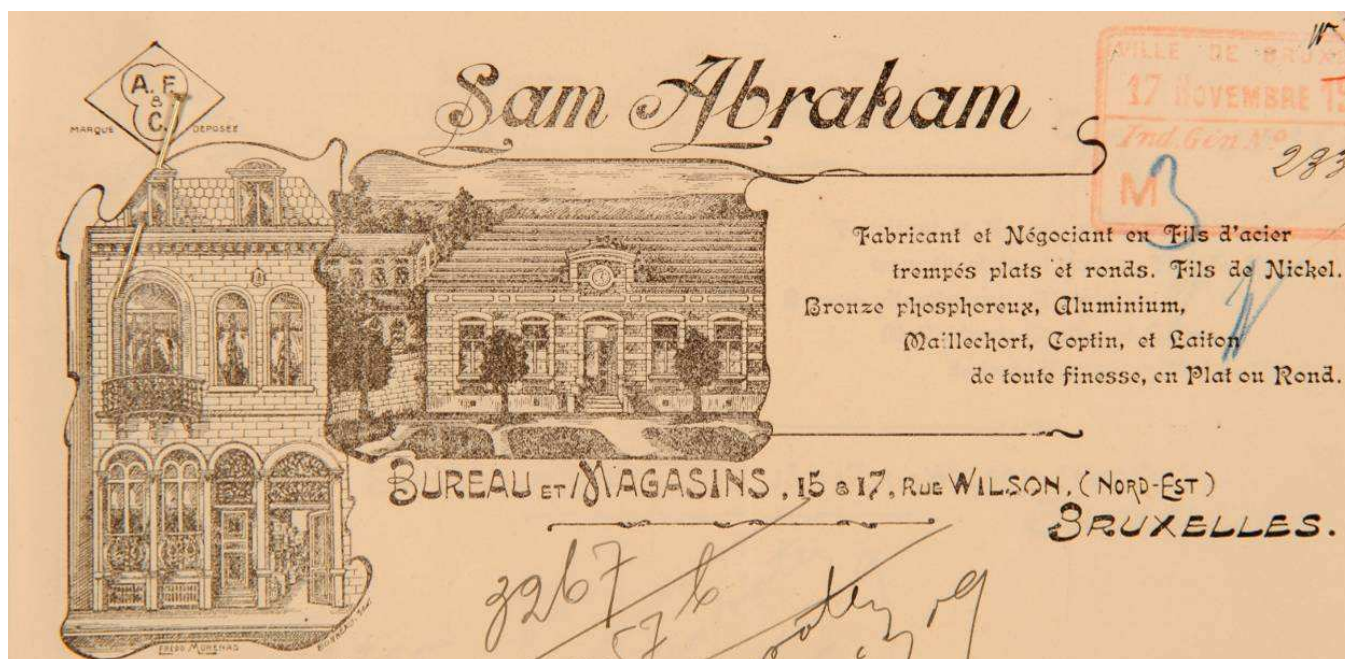 A. F.
&
C.
MARQUE DEPOSÉE
Sam Abraham
VILLE DE BRUX
17 NOVEMBRE 19
Ind. Gén Nº
233
M 3
Fabricant et Négociant en Fils d'acier
trempés plats et ronds. Fils de Nickel.
Bronze phosphoreux, Aluminium,
Maillechort, Coptin, et Laiton
de toute finesse, en Plat ou Rond.
BUREAU ET MAGASINS, 15 & 17, RUE WILSON, (NORD-EST)
BRUXELLES.
3267
576